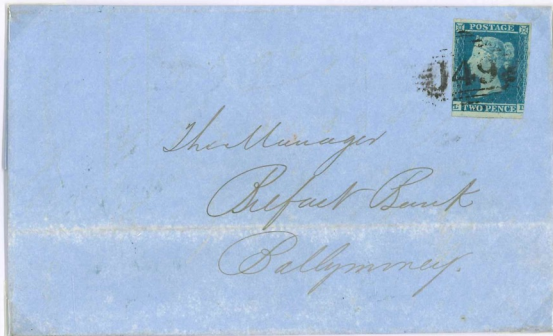 POSTAGE
TWO PENCE
The Manager
Belfast Bank
Ballymoney.